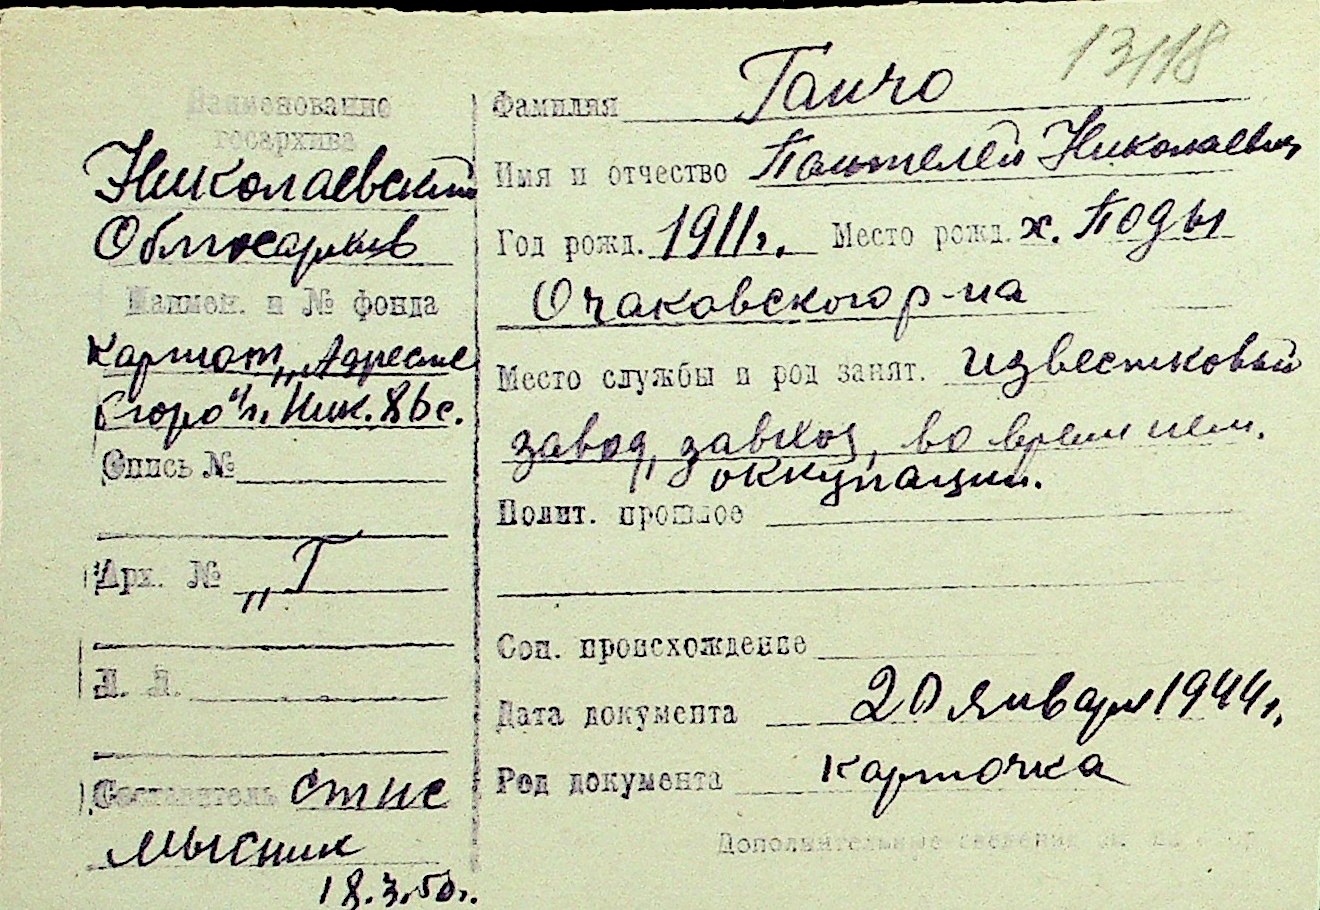 13118
Наименование
госархива
Николаевский
Облгосархив
Наимен. и № фонда
Картот. „Адресное
бюро" г. Ник. 86с.
Опись №
Арх. № „Г
Л. Л.
Составитель
Мысник
18.3.50г.
Фамилия Ганчо
Имя и отчество Пантелей Николаевич
Год рожд. 1911г. Место рожд. х. Поды
Очаковского р-на
Место службы и род занят. известковый
завод, завхоз, во время нем.
оккупации.
Полит. прошлое
Соц. происхождение
Дата документа 20 января 1944г.
Род документа карточка
Дополнительные сведения